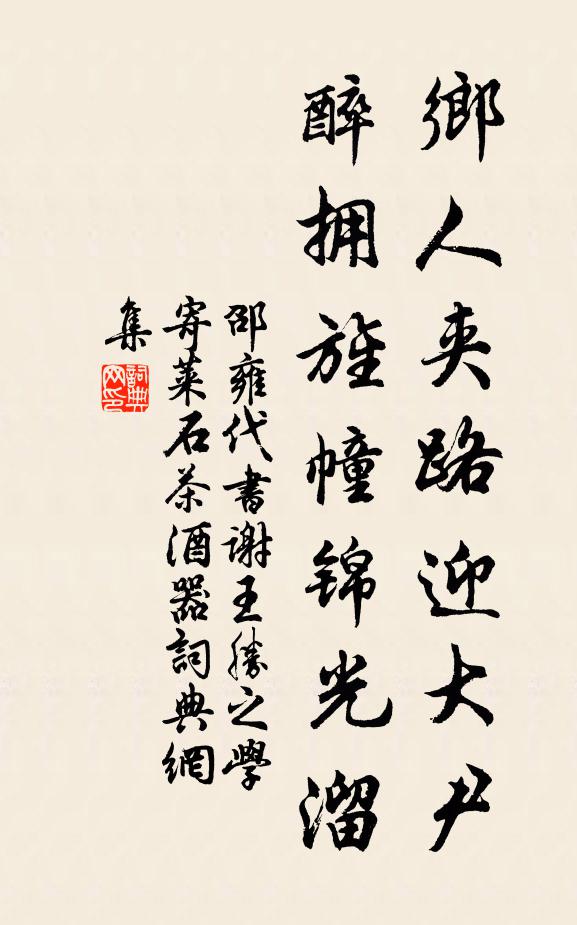 鄉人夾路迎大尹
醉擁旌幢錦光溜
邵雍代書謝王勝之學
寄萊石茶酒器詞典網
集
詞典
网印